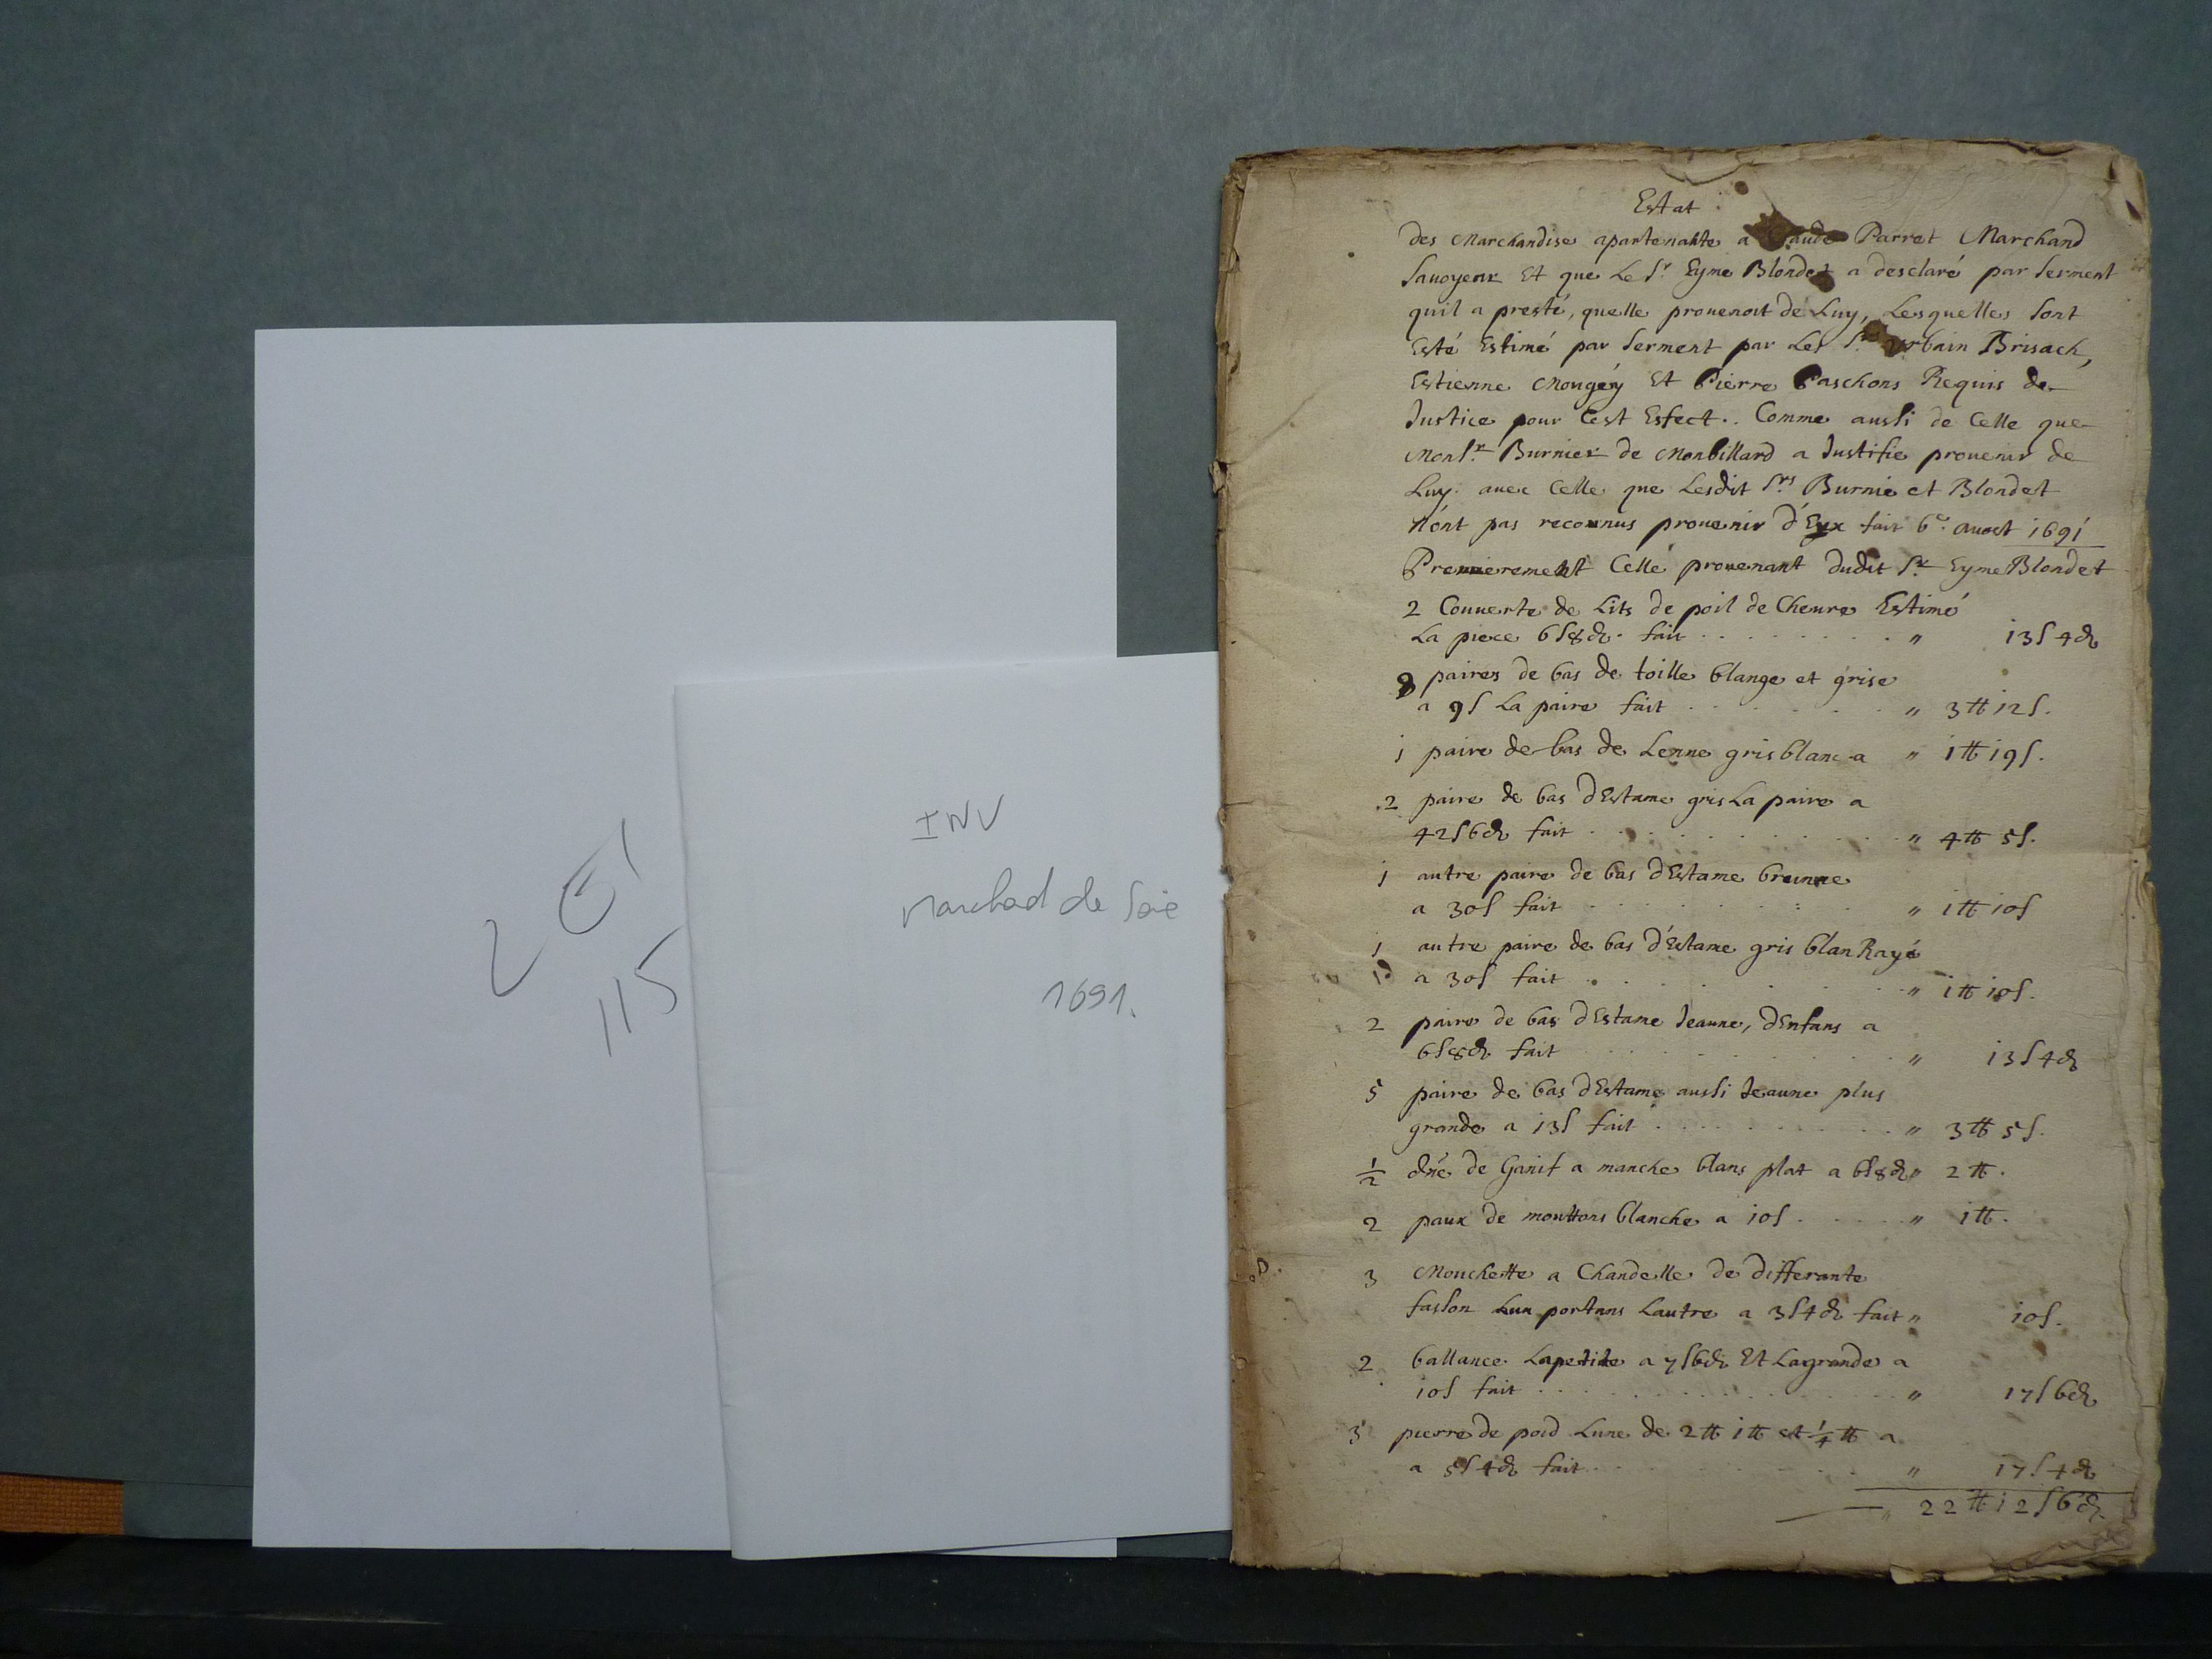 2 E 1
115
INV
Marchad de Soie
1691.
Estat
des Marchandise apartenante a Claude Parret Marchand
Sauoyent Et que Le Sr. Eyme Blondet a desclaré par serment
quil a presté, quelle prouenoit de Luy, Lesquelles sont
Esté Estimé par serment par Les Srs Urbain Brisach,
Estienne Mougéy Et Pierre Paschons Requis de
Justice pour Cest Esfect.. Comme aussi de Celle que
Monsr. Burnier de Monbillard a Justifie prouenir de
Luy. auec Celle que Lesdit Srs Burnie et Blondet
n'ont pas reconnus prouenir d'Eux fait 6e. Auost 1691
Premierement Celle prouenant dudit Sr Eyme Blondet
2 Couuerte de Lits de poil de Cheure Estimé
La piece 6s8d. fait . . . . . . . . " 13s4d
8 paires de bas de toille blange et grise
a 9s La paire fait . . . . . . " 3₶12s.
1 paire de bas de Lenne gris blanc a " 1₶19s.
2 paire de bas dEstame gris La paire a
42s6d fait . . . . . . . . . " 4₶5s.
1 autre paire de bas dEstame breunne
a 30s fait . . . . . . . " 1₶10s
1 autre paire de bas d'Estame gris blan Rayé
a 30s fait . . . . . . . . " 1₶10s.
2 paire de bas dEstame Jeaune, dEnfans a
6s8d fait . . . . . . . . " 13s4d
5 paire de bas dEstame aussi Jeaune plus
grande a 13s fait . . . . . . . . " 3₶5s.
1/2 dne de Ganif a manche blanc plat a 6s8d " 2₶.
2 paux de mouttons blanche a 10s . . . . . " 1₶.
3 Mouchette a Chandelle de differante
fasson Lun portans Lautre a 3s4d fait " 10s.
2 ballance La petite a 7s6d Et La grande a
10s fait . . . . . . . . . . " 17s6d
3 pierre de poid Lune de 2₶ 1₶ et 1/4 ₶ a
a 5s4d fait . . . . . . . . " 17s4d
" 22₶12s6d.